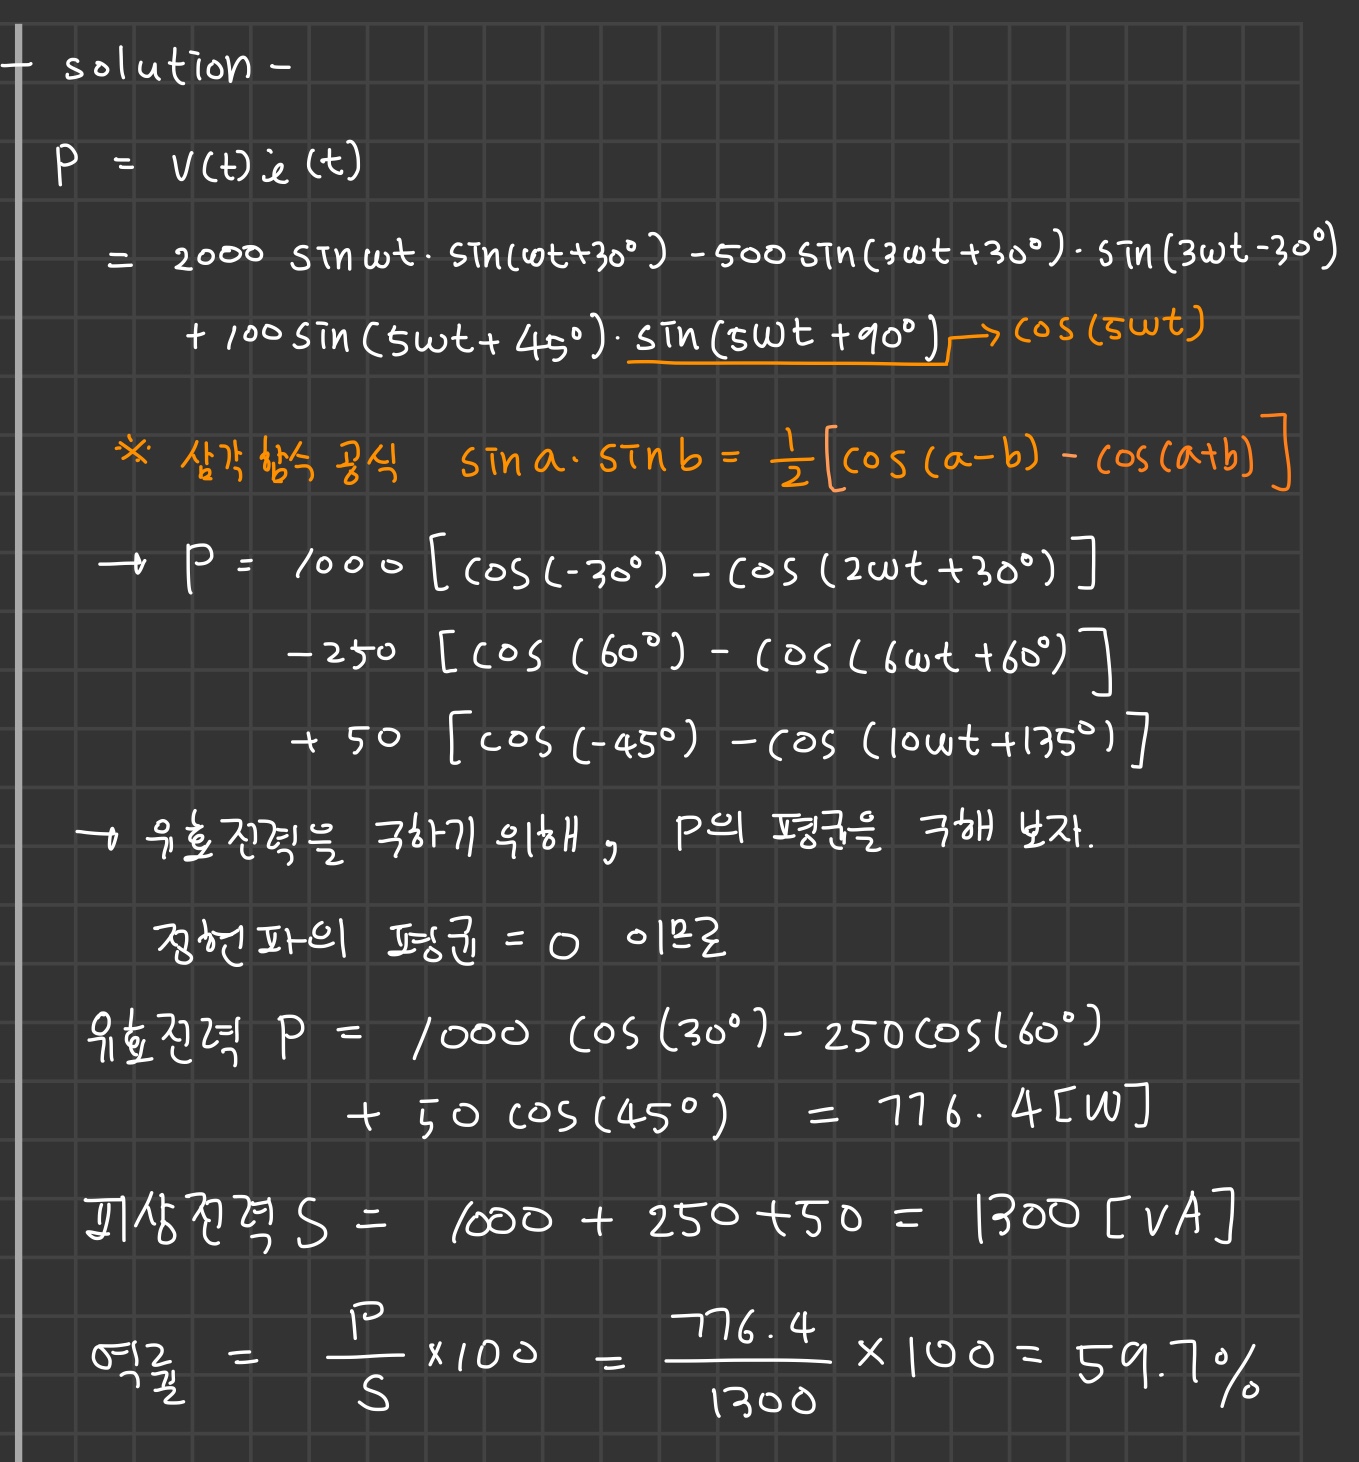 - solution -
P = v(t) i(t)
= 2000 sin ωt · sin(ωt+30°) - 500 sin(3ωt+30°) · sin(3ωt-30°)
+ 100 sin(5ωt+45°) · sin(5ωt+90°) → cos(5ωt)
※ 삼각함수 공식 sin a · sin b = 1/2 [cos(a-b) - cos(a+b)]
→ P = 1000 [cos(-30°) - cos(2ωt+30°)]
-250 [cos(60°) - cos(6ωt+60°)]
+ 50 [cos(-45°) - cos(10ωt+135°)]
→ 유효전력을 구하기 위해, P의 평균을 구해 보자.
정현파의 평균 = 0 이므로
유효전력 P = 1000 cos(30°) - 250 cos(60°)
+ 50 cos(45°) = 776.4 [W]
피상전력 S = 1000 + 250 + 50 = 1300 [VA]
역률 = P/S × 100 = 776.4/1300 × 100 = 59.7%